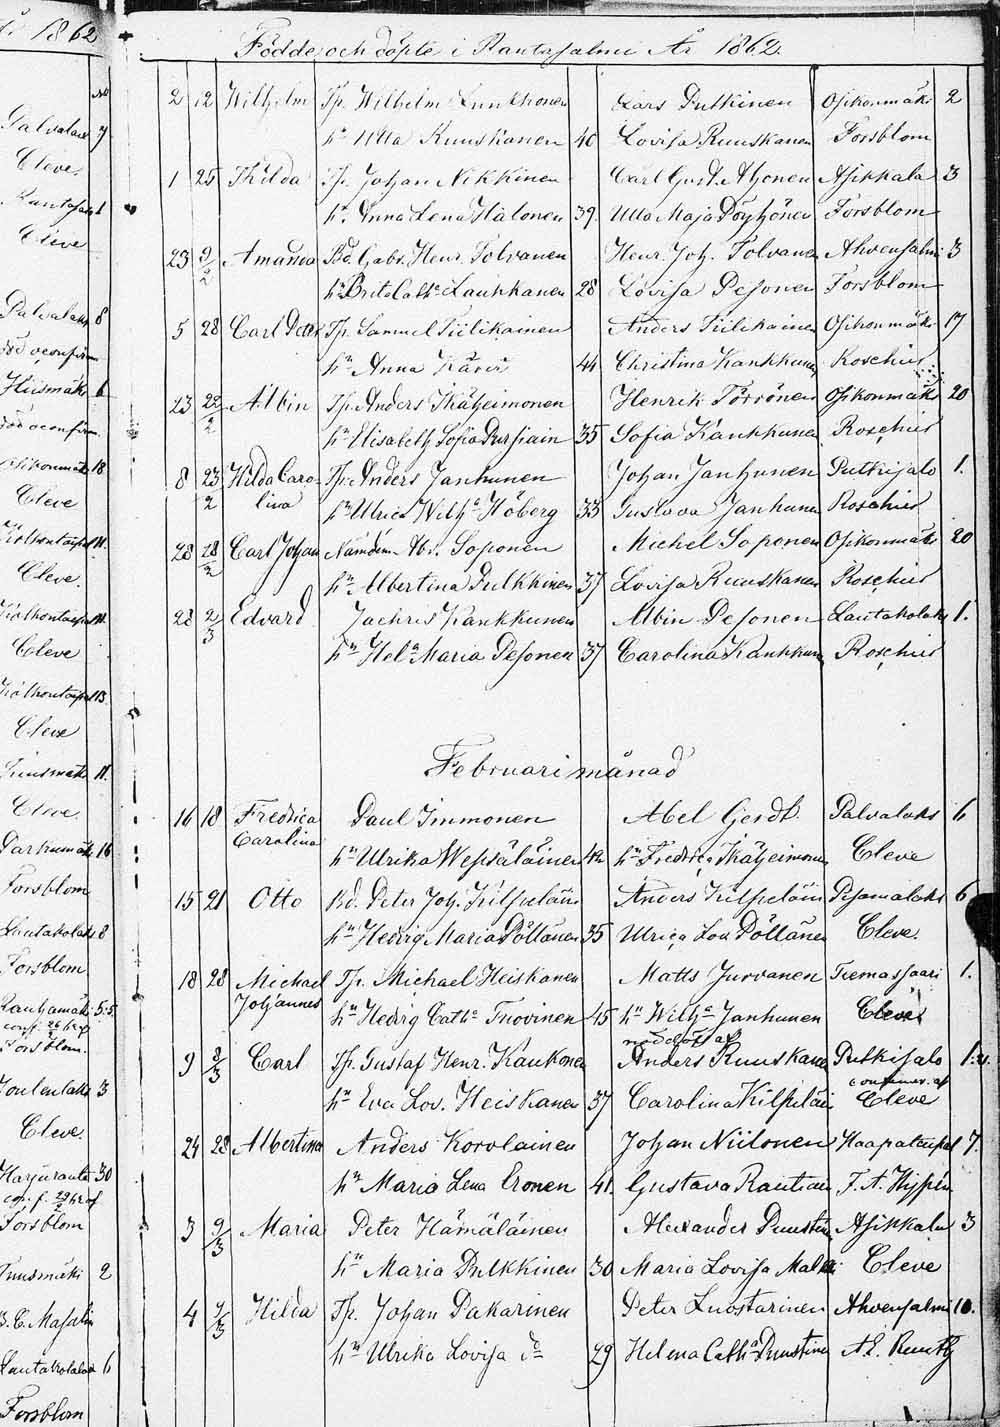 År 1862
No
Palvalaks 7
Cleve
Rantasalmi 1
Cleve
Palvalaks 8
Hiismäki 6
Osikonmäki 18
Cleve
Cleve.
Cleve
Cleve
Cleve.
16
Forsblom
Lautakolaks 8
Forsblom
Forsblom.
Joulenlaks 3
Cleve.
Harjuranta 30
Forsblom
Tuusmäki 2
Lautakolaks 6
Forsblom
Födde och döpte i Rantasalmi År 1862.
2 12 Wilhelm Tp. Wilhelm Lunkhonen Lars Putkinen Osikonmäki 2
hn Ulla Ruuskanen 40 Lovisa Ruuskanen Forsblom
1 25 Thilda Tp. Johan Nikkinen Carl Gust. Ahonen Asikkala 3
hn Anna Lena Halonen 39 Ulla Maja Pöyhönen Forsblom
23 2/2 Amanda Bd. Gabr. Henr. Tolvanen Henr. Joh. Tolvanen Ahvensalmi 3
hn Brita Cath. Laukkanen 28 Lovisa Pesonen Forsblom
5 28 Carl Peter Tp. Samuel Tiilikainen Anders Tiilikainen Osikonmäki 17
hn Anna Kärir 44 Christina Kankkunen Roschier
23 22/2 Albin Tp. Anders Ikäheimonen Henrik Törrönen Osikonmäki 20
hn Elisabeth Sofia Pursiain 35 Sofia Kankkunen Roschier
8 23/2 Hilda Caro- Tp. Anders Janhunen Johan Janhunen Putkisalo 1.
lina hn Ulrica Wilh:a Höberg 33 Gustava Janhunen Roschier
28 28/2 Carl Johan Nämdem. Abr. Soponen Michel Soponen Osikonmäki 20
hn Albertina Pulkkinen 37 Lovisa Ruuskanen Roschier
28 2/3 Edvard Zachris Kankkunen Albin Pesonen Lautakolaks 1.
hn Hel:a Maria Pesonen 37 Carolina Kankkun Roschier
Februari månad
16 18 Fredrica Paul Immonen Abel Gerdt. Palvalaks 6
Carolina hn Ulrika Wepsäläinen 42 hn Fredrica Ikäheimonen Cleve
15 21 Otto Bd. Peter Joh. Kilpeläin Anders Kilpeläin Pesamalaks 6
hn Hedvig Maria Pöllänen 35 Ulrica Lov Pöllänen Cleve.
18 23 Michael Tp. Michael Heiskanen Matts Jurvanen Tiemassaari 1.
Johannes hn Hedvig Cath:a Tuovinen 45 hn Wilh:a Janhunen Cleve
nöddöpt af
9 2/3 Carl Tp. Gustaf Henr. Kaukonen Anders Ruuskanen Putkisalo 1.
confirmer. af
hn Eva Lov. Heiskanen 37 Carolina Kilpeläin Cleve
24 28 Albertina Anders Korolainen Johan Niilonen Haapataipal 7.
hn Maria Lena Eronen 41. Gustava Rautiain F. A. Hyppén
3 9/3 Maria Peter Hämäläinen Alexander Puustin Asikkala 3
hn Maria Pulkkinen 30 Maria Lovisa Malkki Cleve
4 9/3 Hilda Tp. Johan Pakarinen Peter Luostarinen Ahvensalmi 10.
hn Ulrika Lovisa do 29 Helena Cath:a Puustinen